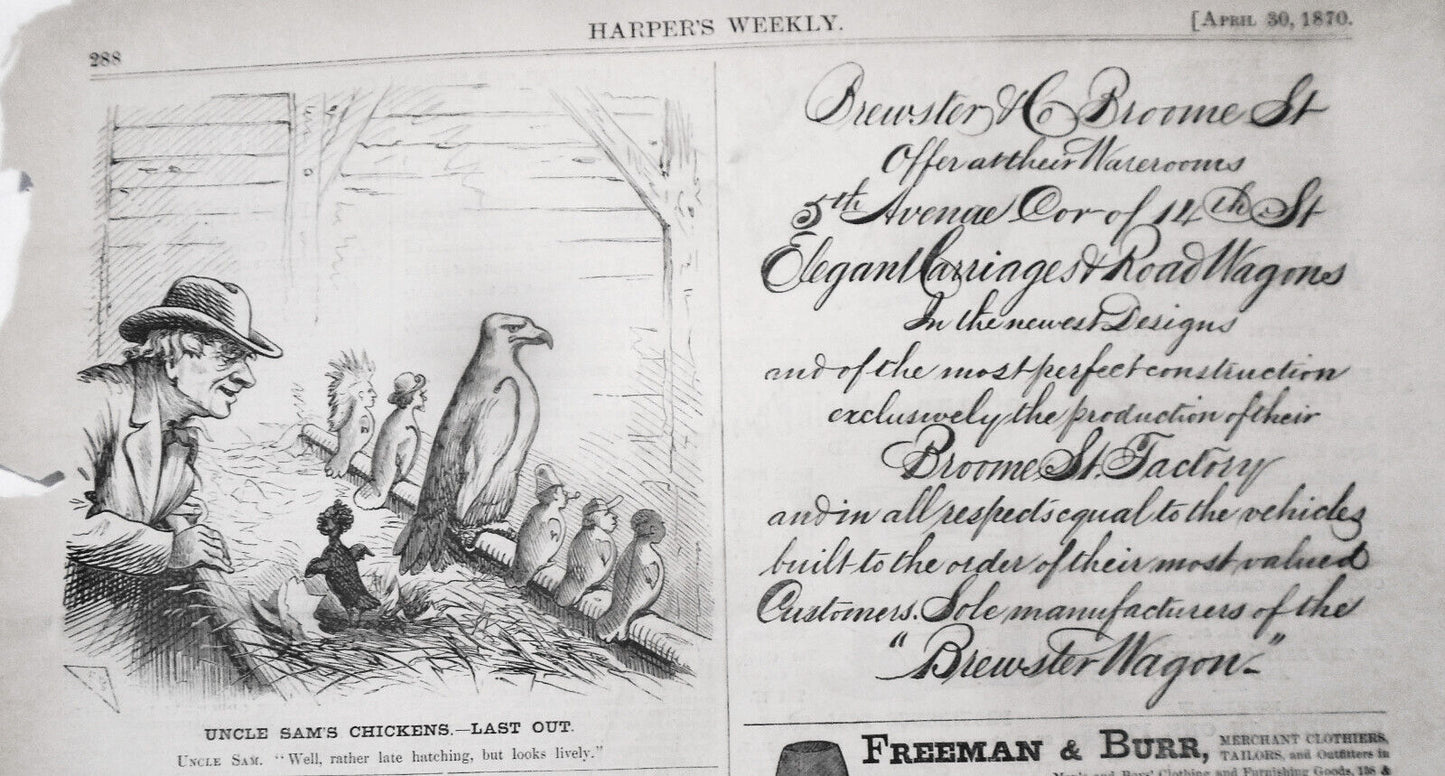 288
HARPER'S WEEKLY.
[APRIL 30, 1870.
UNCLE SAM'S CHICKENS.—LAST OUT.
UNCLE SAM. "Well, rather late hatching, but looks lively."
Brewster & Co Broome St
Offer at their Warerooms
5th Avenue Cor of 14th St
Elegant Carriages & Road Wagons
In the newest Designs
and of the most perfect construction
exclusively the production of their
Broome St. Factory
and in all respects equal to the vehicles
built to the order of their most valued
Customers. Sole manufacturers of the
"Brewster Wagon."
FREEMAN & BURR,
MERCHANT CLOTHIERS,
TAILORS, and Outfitters in
Men's and Boys' Clothing and Furnishing Goods, 138 &